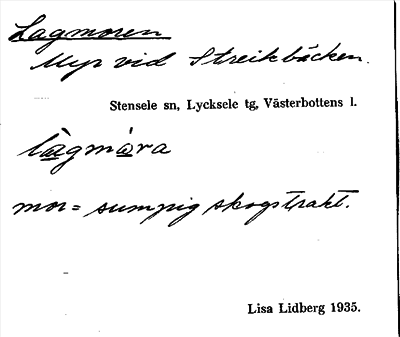 Lagmoren
Myr vid Streikbäcken.
Stensele sn, Lycksele tg, Västerbottens l.
lagmåra
mor = sumpig skogstrakt.
Lisa Lidberg 1935.